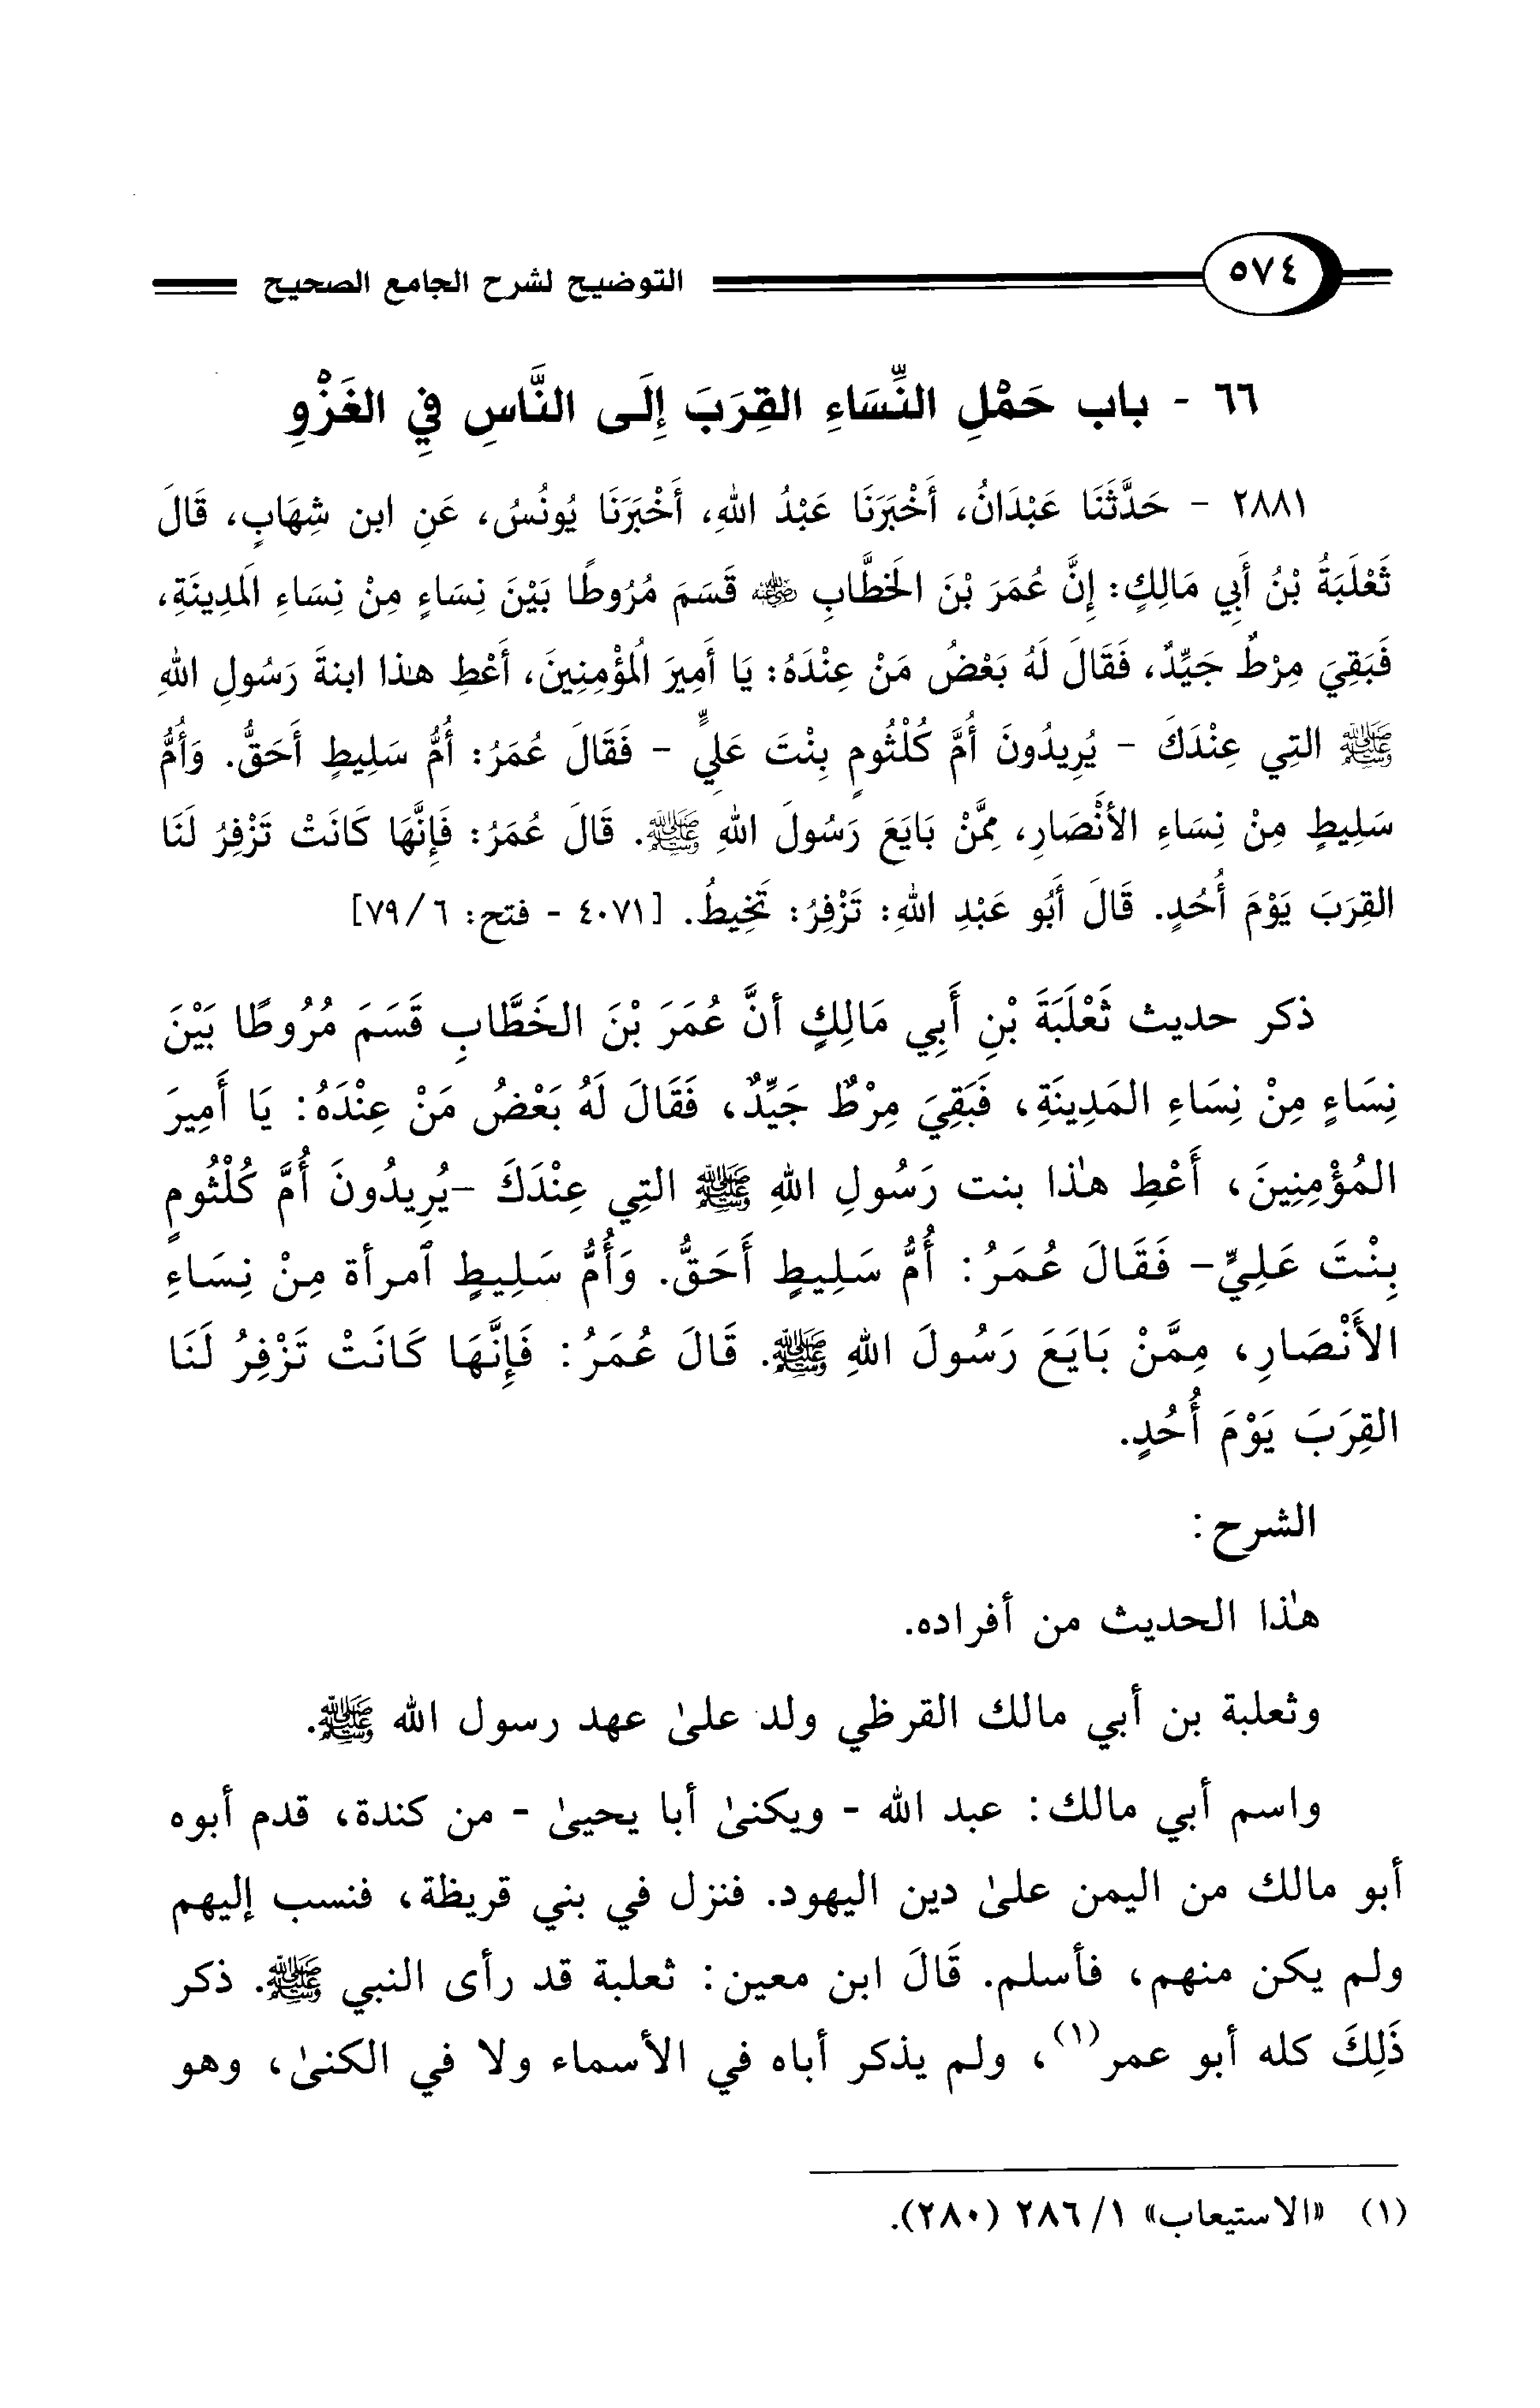 ٥٧٤
التوضيح لشرح الجامع الصحيح
٦٦ - باب حَمْلِ النِّسَاءِ القِرَبَ إِلَى النَّاسِ فِي الغَزْوِ
٢٨٨١ - حَدَّثَنَا عَبْدَانُ، أَخْبَرَنَا عَبْدُ اللهِ، أَخْبَرَنَا يُونُسُ، عَنِ ابن شِهَابٍ، قَالَ
ثَعْلَبَةُ بْنُ أَبِي مَالِكٍ: إِنَّ عُمَرَ بْنَ الَخطَّابِ رضي الله عنه قَسَمَ مُرُوطًا بَيْنَ نِسَاءٍ مِنْ نِسَاءِ الَمدِينَةِ،
فَبَقِيَ مِرْطٌ جَيِّدٌ، فَقَالَ لَهُ بَعْضُ مَنْ عِنْدَهُ: يَا أَمِيرَ الُمؤْمِنِينَ، أَعْطِ هذا ابنةَ رَسُولِ اللهِ
ﷺ التِي عِنْدَكَ - يُرِيدُونَ أُمَّ كُلْثُومٍ بِنْتَ عَلِيٍّ - فَقَالَ عُمَرُ: أُمُّ سَلِيطٍ أَحَقُّ. وَأُمُّ
سَلِيطٍ مِنْ نِسَاءِ الأَنْصَارِ، مِمَّنْ بَايَعَ رَسُولَ اللهِ ﷺ. قَالَ عُمَرُ: فَإِنَّهَا كَانَتْ تَزْفِرُ لَنَا
القِرَبَ يَوْمَ أُحُدٍ. قَالَ أَبُو عَبْدِ اللهِ: تَزْفِرُ: تَخِيطُ. [٤٠٧١ - فتح: ٦/ ٧٩]
ذكر حديث ثَعْلَبَةَ بْنِ أَبِي مَالِكٍ أنَّ عُمَرَ بْنَ الخَطَّابِ قَسَمَ مُرُوطًا بَيْنَ
نِسَاءٍ مِنْ نِسَاءِ المَدِينَةِ، فَبَقِيَ مِرْطٌ جَيِّدٌ، فَقَالَ لَهُ بَعْضُ مَنْ عِنْدَهُ: يَا أَمِيرَ
المُؤْمِنِينَ، أَعْطِ هذا بنت رَسُولِ اللهِ ﷺ التِي عِنْدَكَ -يُرِيدُونَ أُمَّ كُلْثُومٍ
بِنْتَ عَلِيٍّ- فَقَالَ عُمَرُ: أُمُّ سَلِيطٍ أَحَقُّ. وَأُمُّ سَلِيطٍ ٱمرأة مِنْ نِسَاءِ
الأَنْصَارِ، مِمَّنْ بَايَعَ رَسُولَ اللهِ ﷺ. قَالَ عُمَرُ: فَإِنَّهَا كَانَتْ تَزْفِرُ لَنَا
القِرَبَ يَوْمَ أُحُدٍ.
الشرح:
هٰذا الحديث من أفراده.
وثعلبة بن أبي مالك القرظي ولد علىٰ عهد رسول الله ﷺ.
واسم أبي مالك: عبد الله - ويكنىٰ أبا يحيىٰ - من كندة، قدم أبوه
أبو مالك من اليمن علىٰ دين اليهود. فنزل في بني قريظة، فنسب إليهم
ولم يكن منهم، فأسلم. قَالَ ابن معين: ثعلبة قد رأى النبي ﷺ. ذكر
ذَلِكَ كله أبو عمر(١)، ولم يذكر أباه في الأسماء ولا في الكنىٰ، وهو
(١) «الاستيعاب» ١/ ٢٨٦ (٢٨٠).